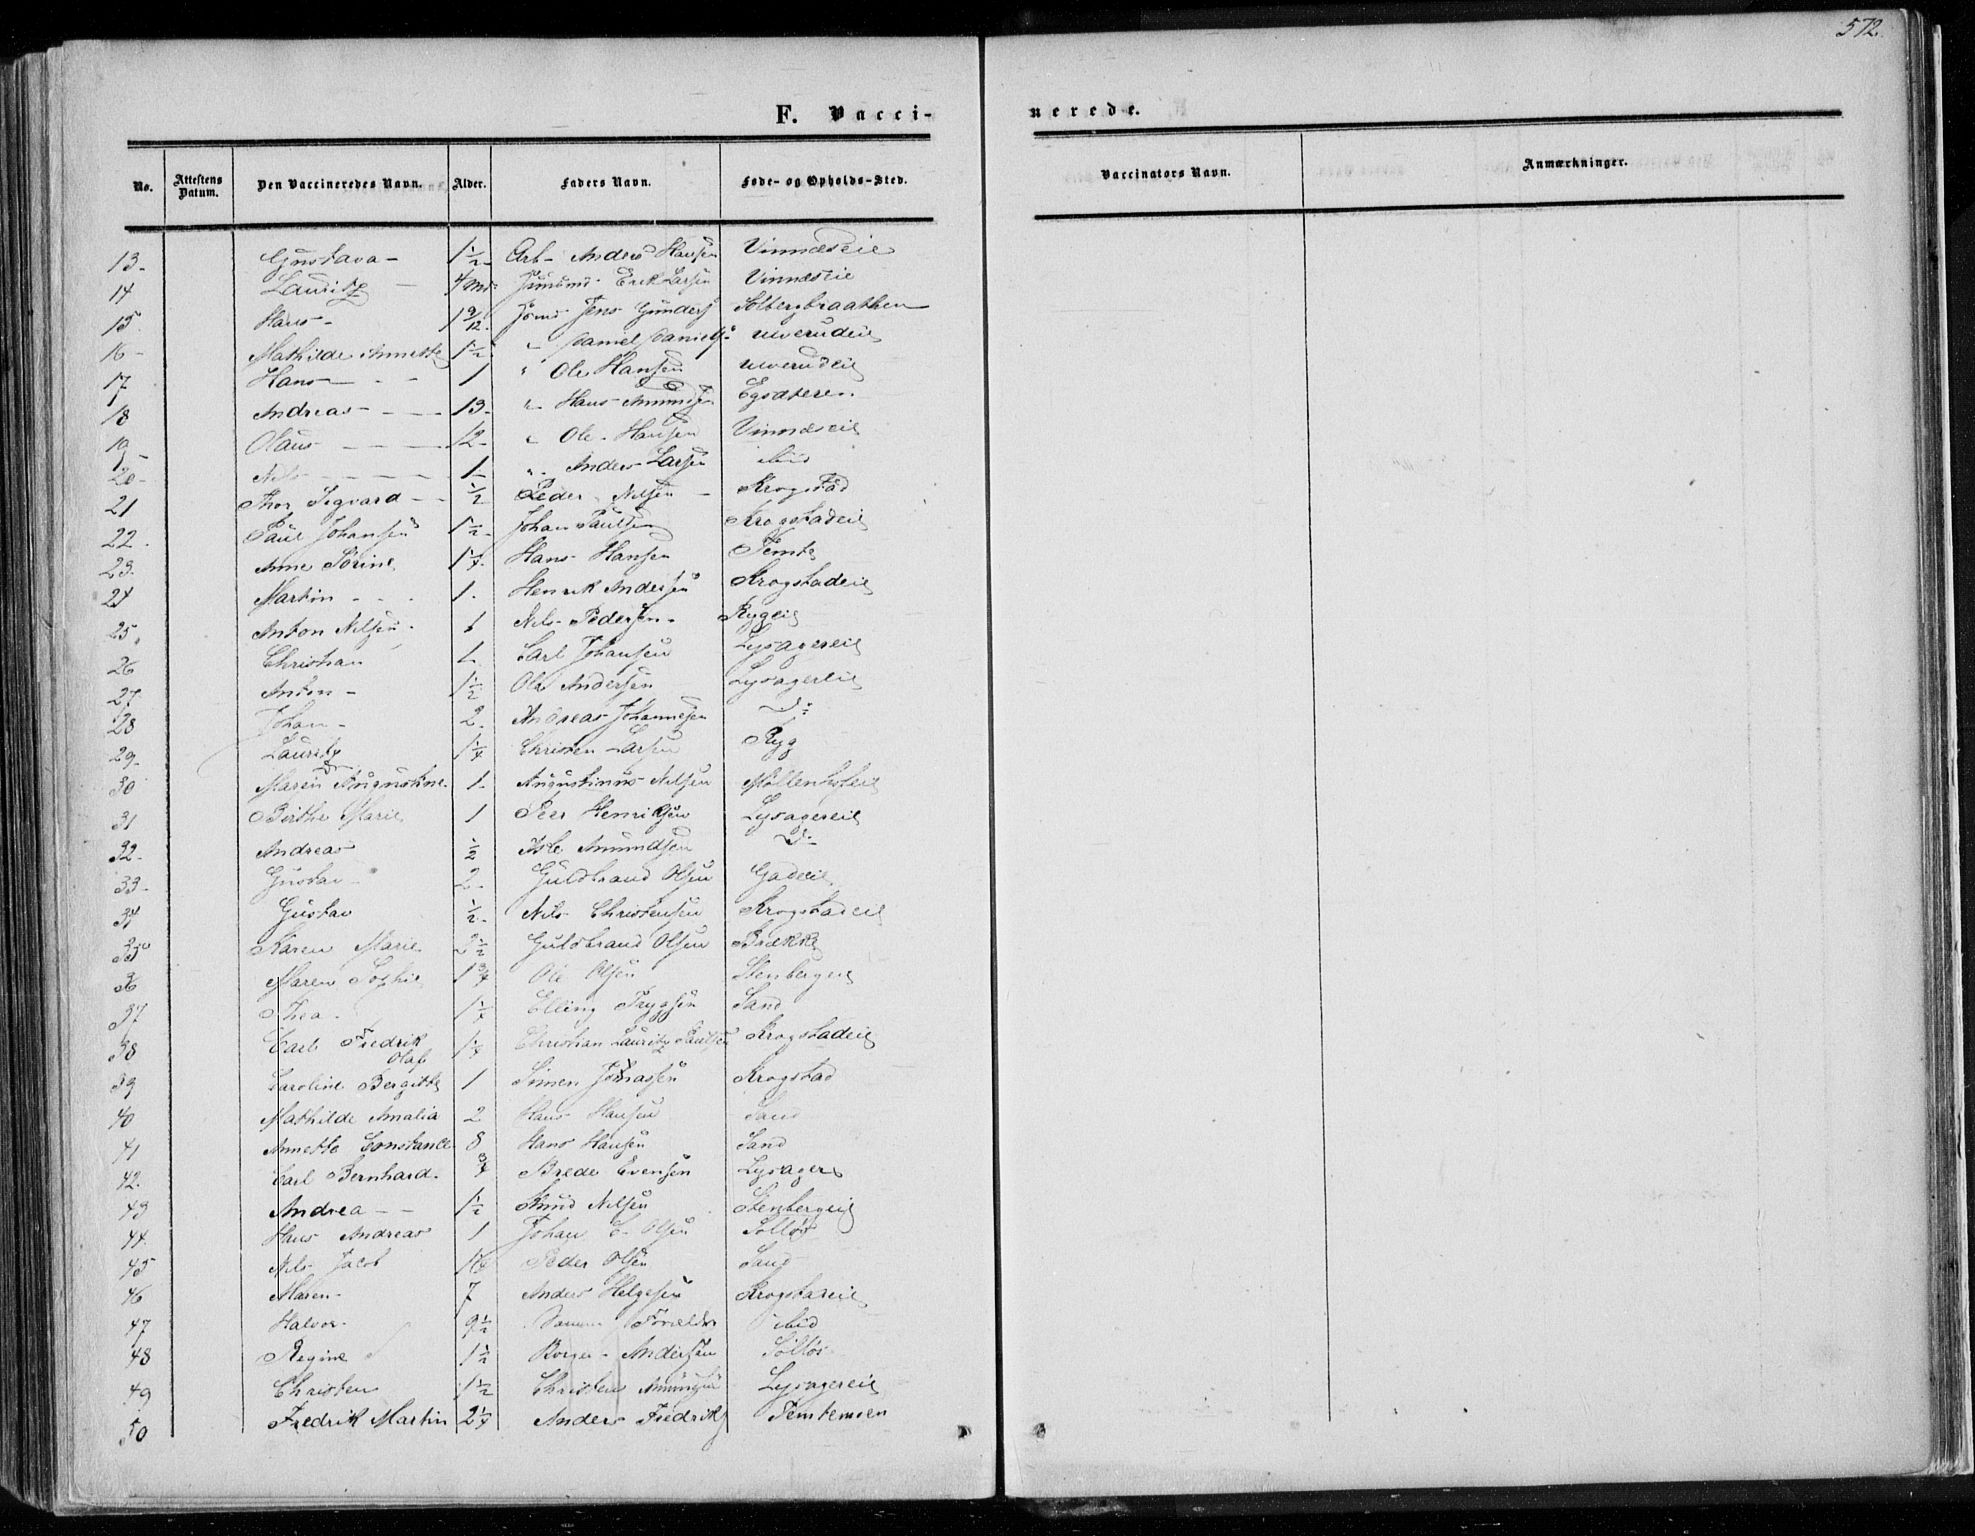 572.
F. Vacci-
nerede.
No. Attestens Datum. Den Vaccineredes Navn. Alder. Faders Navn. Føde- og Opholds-Sted. Vaccinators Navn. Anmærkninger.
13- Gustava- 1½- Arb- Anders Hansen Vinnæseie
14 Lauritz Erik Larsen Vinnæseie
15. Hans- 1 9/12. Jens Gunders Solbergbraathen
16- Mathilde Annette 1½ " Daniel Daniels. Ulverudeie
17 Hans - - 1 " Ole Hansen Ulverudeie
18 Andreas - - - 13- " Hans Amundsen
19 Olaus - - - 12- " Ole Hansen Vinnæseie
20- Nils - - - 1- " Anders Larsen ibid
21 Thor Sigvard - - ½ Peder Nilsen - Krogstad
22. Paul Johansen 1½- Johan Paulsen Krogstadeie
23. Anne Sørine 1¼. Hans Hansen Temte
24 Martin - - - 1. Henrik Andersen Krogstadeie
25. Anton Nilsen - 1 Nils Pedersen- Rygeie
26 Christian Carl Johansen Lysagereie
27. Anton- 1½ Ole Andersen Lysagereie
28 Johan- 2. Andreas Johannesen Do
29. Lauritz 1¼ Christen Larsen Ryg
30 Maren Augustine. 1- Augustinus Nilsen
31 Birthe Marie 1 Peer Henriksen Lysagereie
32. Andreas ½ Amundsen Do
33- Gustav - 2- Guldbrand Olsen Gadeeie
34 Gustav ½- Nils Christensen Krogstadeie
35 Karen Marie 2½ Guldbrand Olsen Brække
36 Maren Sophie 1¾ Ole Olsen Stenbergeie
37 Thea - 1¼ Elling Tryggsen Sand
38 Carl Fredrik Olaf 1¼ Christian Lauritz Paulsen Krogstadeie
39 Caroline Bergitte 1 Simen Johnassen Krogstad
40 Mathilde Amalia 2 Hans Hansen Sand
41 Annette Constance 8 Hans Hansen Sand
42. Carl Bernhard. ¾ Brede Evensen Lysager
43 Andrea - - 1½ Knud Nilsen Stenbergeie
44. Hans Andreas 1 Johan E. Olsen
45 Nils Jacob Peder Olsen Sand
46 Maren- 7 Anders Helgesen Krogstadeie
47 Halvor- 9½ Samme Forældre ibid
48 Regine 1½ Borger Andersen
49 Christen 1½ Christen Lysagereie
50 Fredrik Martin 2¼ Anders Fredriks Temtemoen